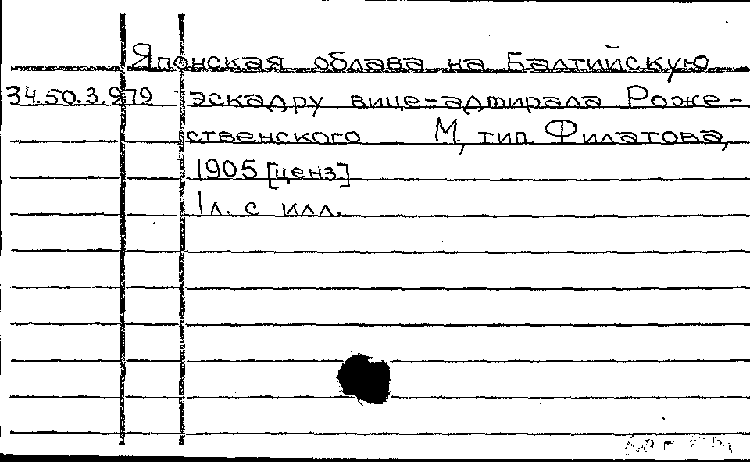 Японская облава на Балтийскую
34.50.3.979 эскадру вице-адмирала Роже-
ственского М, тип. Филатова,
1905 [ценз]
1л. с илл.